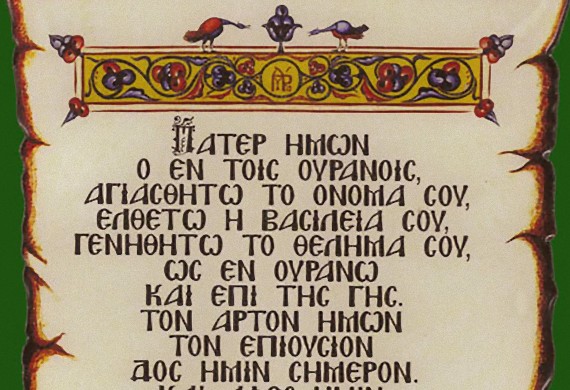 ΠΑΤΕΡ ΗΜΩΝ
Ο ΕΝ ΤΟΙΣ ΟΥΡΑΝΟΙΣ,
ΑΓΙΑΣΘΗΤΩ ΤΟ ΟΝΟΜΑ ΣΟΥ,
ΕΛΘΕΤΩ Η ΒΑΣΙΛΕΙΑ ΣΟΥ,
ΓΕΝΗΘΗΤΩ ΤΟ ΘΕΛΗΜΑ ΣΟΥ,
ΩΣ ΕΝ ΟΥΡΑΝΩ
ΚΑΙ ΕΠΙ ΤΗΣ ΓΗΣ.
ΤΟΝ ΑΡΤΟΝ ΗΜΩΝ
ΤΟΝ ΕΠΙΟΥΣΙΟΝ
ΔΟΣ ΗΜΙΝ ΣΗΜΕΡΟΝ.